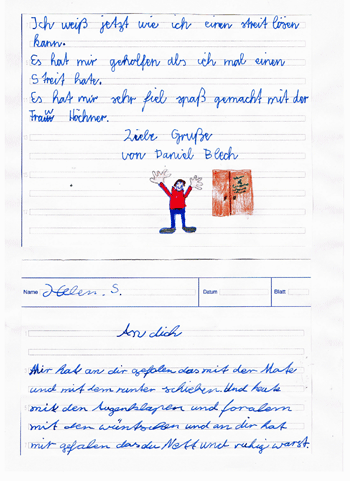 Ich weiß jetzt wie ich einen streit lösen
kann.
Es hat mir geholfen als ich mal einen
Streit hate.
Es hat mir sehr fiel spaß gemacht mit der
Frau Höchner.
Liebe Grüße
von Daniel Blech
Name Helen. S. Datum Blatt
An dich
Mir hat an dir gefalen das mit der Mate
und mit dem runter schieben Und heute
mit den Augenklapen und foralem
mit den wüntschen und an dir hat
mir gefalen das du Nett und ruhig warst.